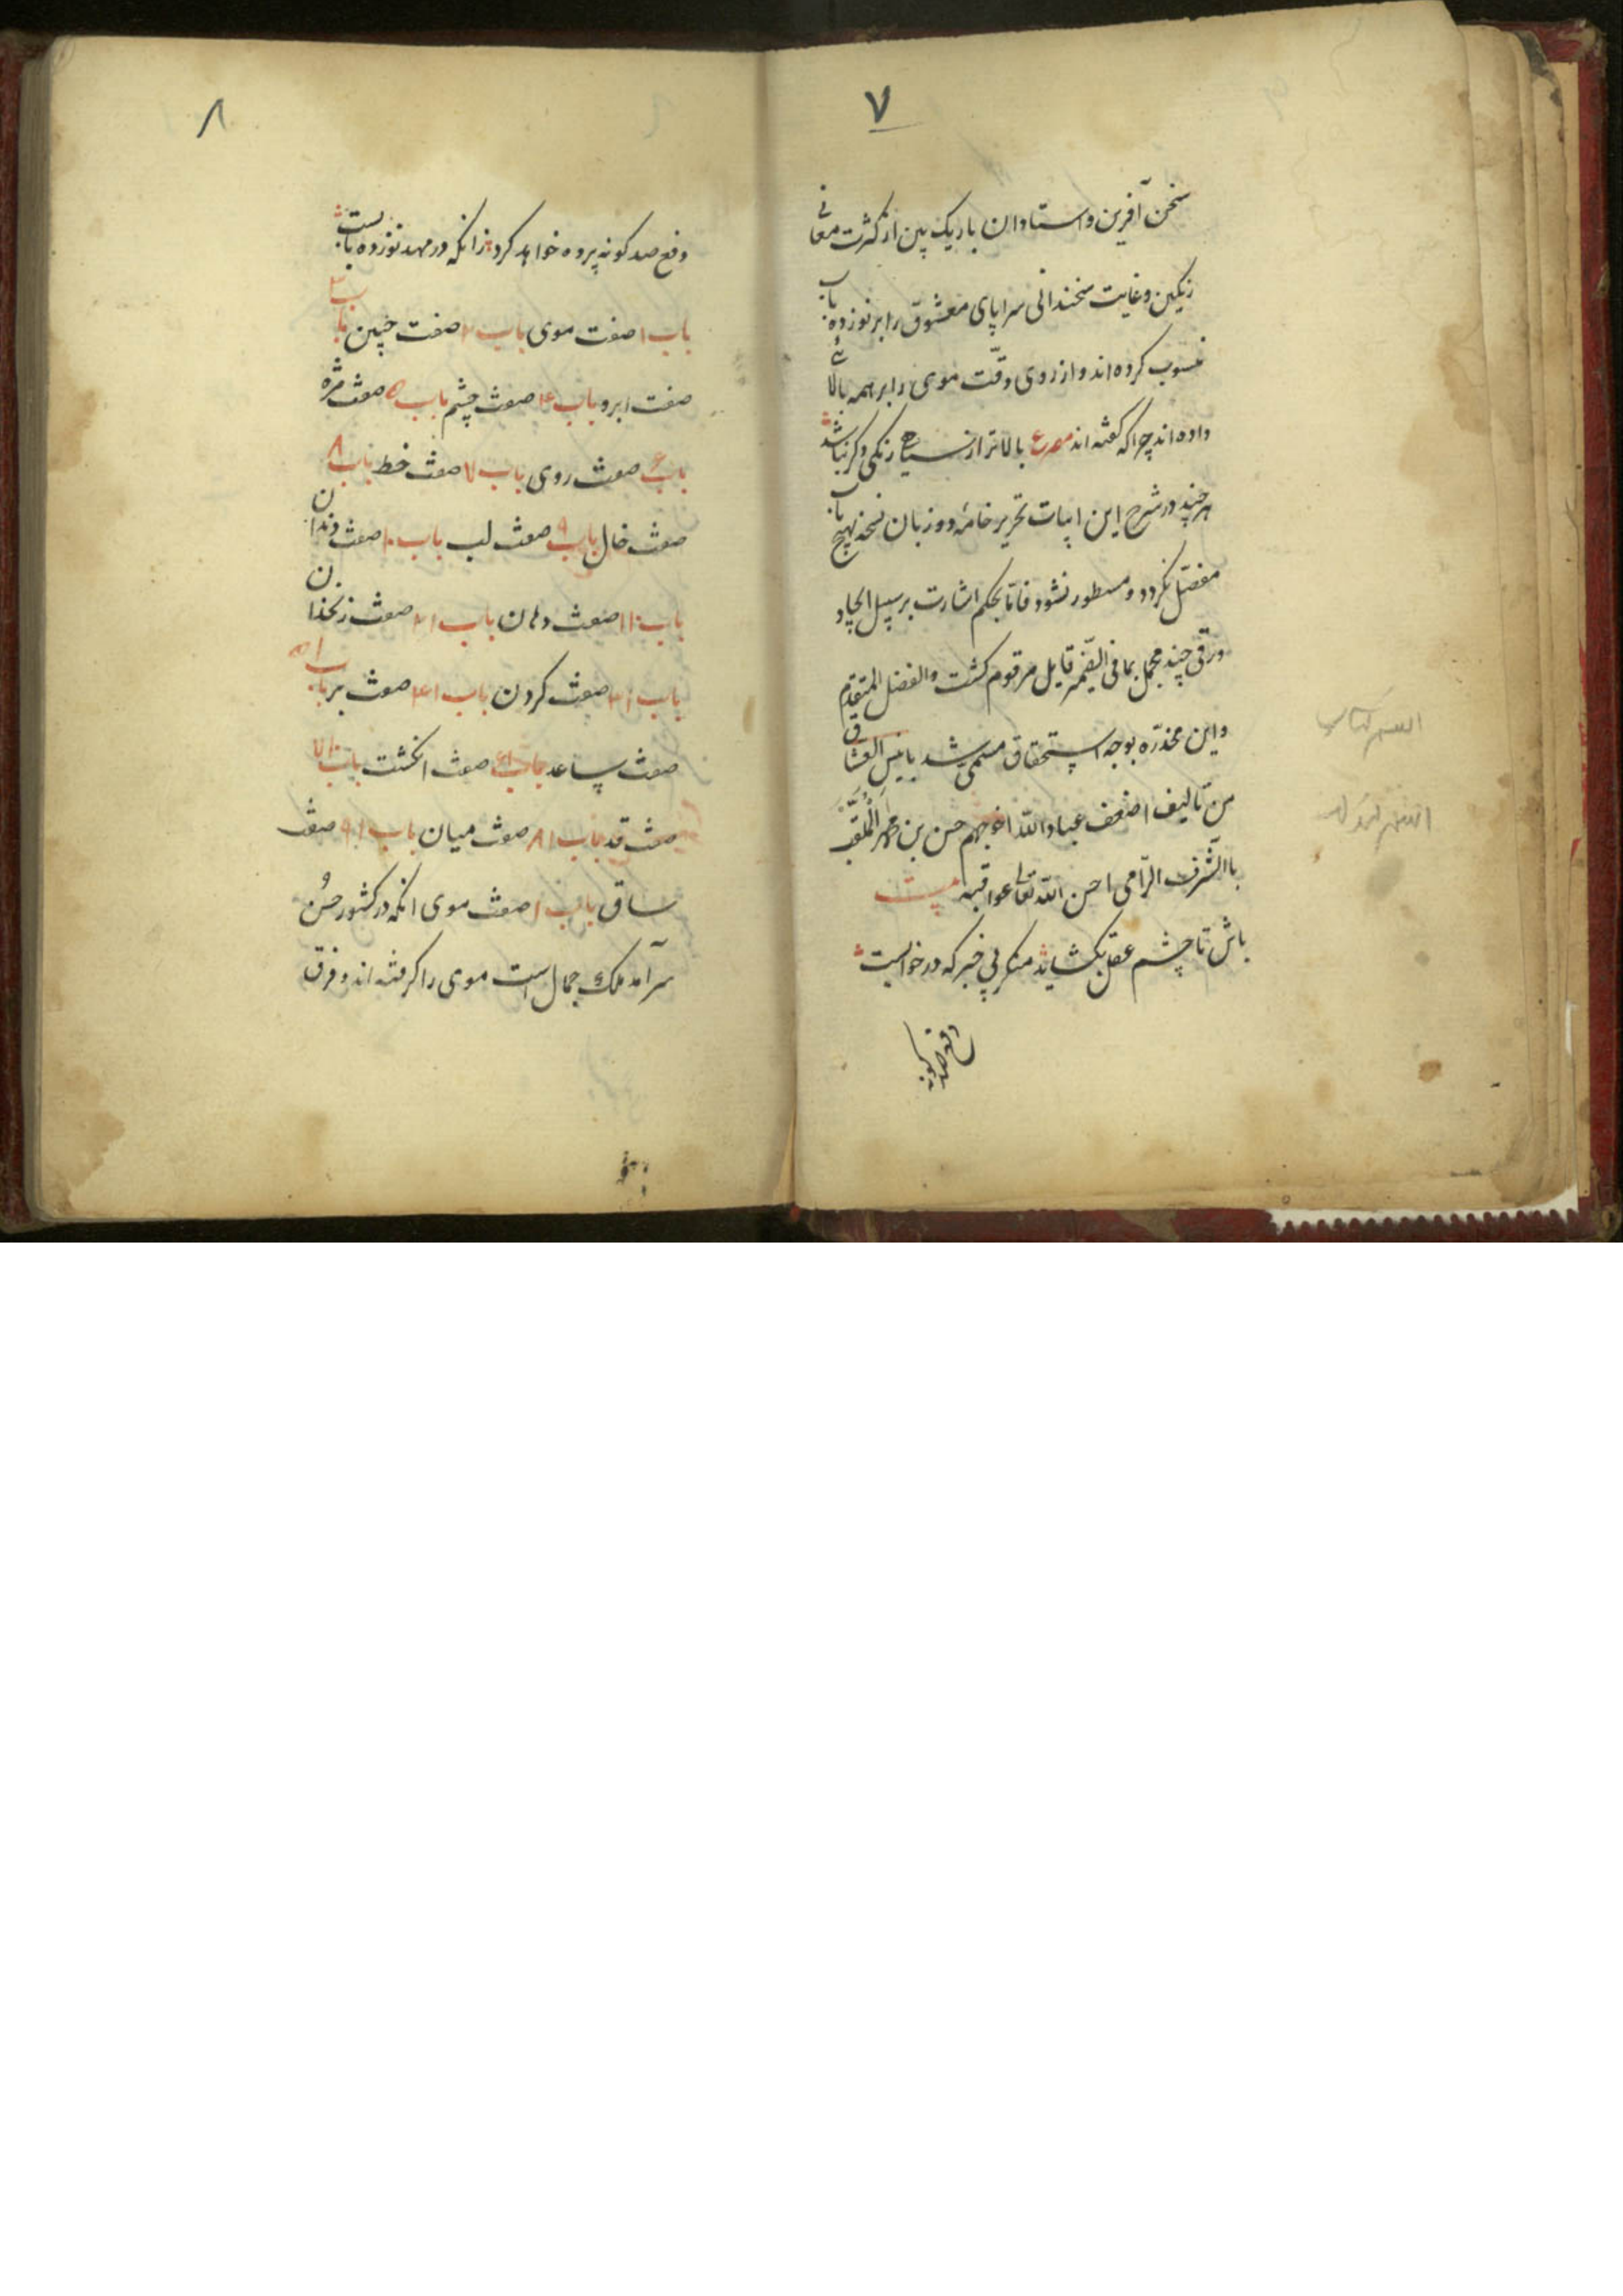 ۷
سخن آفرین و استادان باریک بین از کثرت معانی
رنگین و غایت سخندانی سراپای معشوق را بر نوزده باب
منسوب کرده اند و از روی دقّت موی را بر همه بالائی
داده اند چرا که گفته اند مصرع بالاتر از سیاهی رنگی دگر نباشد
هر چند در شرح این ابیات تحریر خامهٔ دو زبان نسخه بهیچ باب
مفصّل نگردد و مسطور نشود فاما بحکم اشارت بر سبیل ایجاد
ورقی چند مجمل بما فی الضّمیر قایل مرقوم کشت و الفضل للمتقدّم
و این مخدّره بوجه استحقاق مسمّی شد بانیس العشاق
من تألیف اضعف عباد اللّه احوجهم حسن بن محمد الملقّب
باالشّرف الرّامی احسن اللّه تعالی عواقبه
باش تا چشم عقل بکشاید منکر بی خبر که در خوابست
دفع صد کونه
اسم کتاب
۸
دفع صد کونه پرده خواهد کرد زانکه در مهد نوزده بابست
باب ۱ صفت موی باب ۲ صفت جبین باب ۳
صفت ابرو باب ۴ صفت چشم باب ۵ صفت مژه
باب ۶ صفت روی باب ۷ صفت خط باب ۸
صفت خال باب ۹ صفت لب باب ۱۰ صفت دندان
باب ۱۱ صفت دهان باب ۲۱ صفت زنخدان
باب ۳۱ صفت کردن باب ۴۱ صفت بر باب ۵۱
صفت ساعد باب ۶۱ صفت انکشت باب ۷۱
صفت قد باب ۸۱ صفت میان باب ۹۱ صفت
ساق باب ۱ صفت موی انکه در کشور حسن و
سرآمد ملک جمال است موی را کرفته اند و فرق